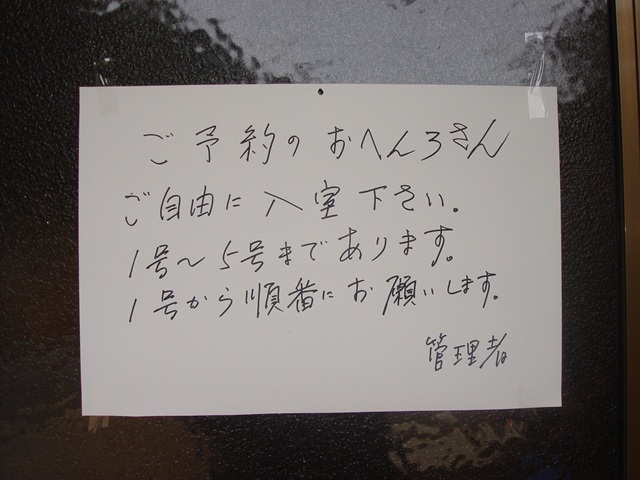 ご予約のおへんろさん
ご自由に入室下さい。
1号～5号まであります。
1号から順番にお願いします。
管理者